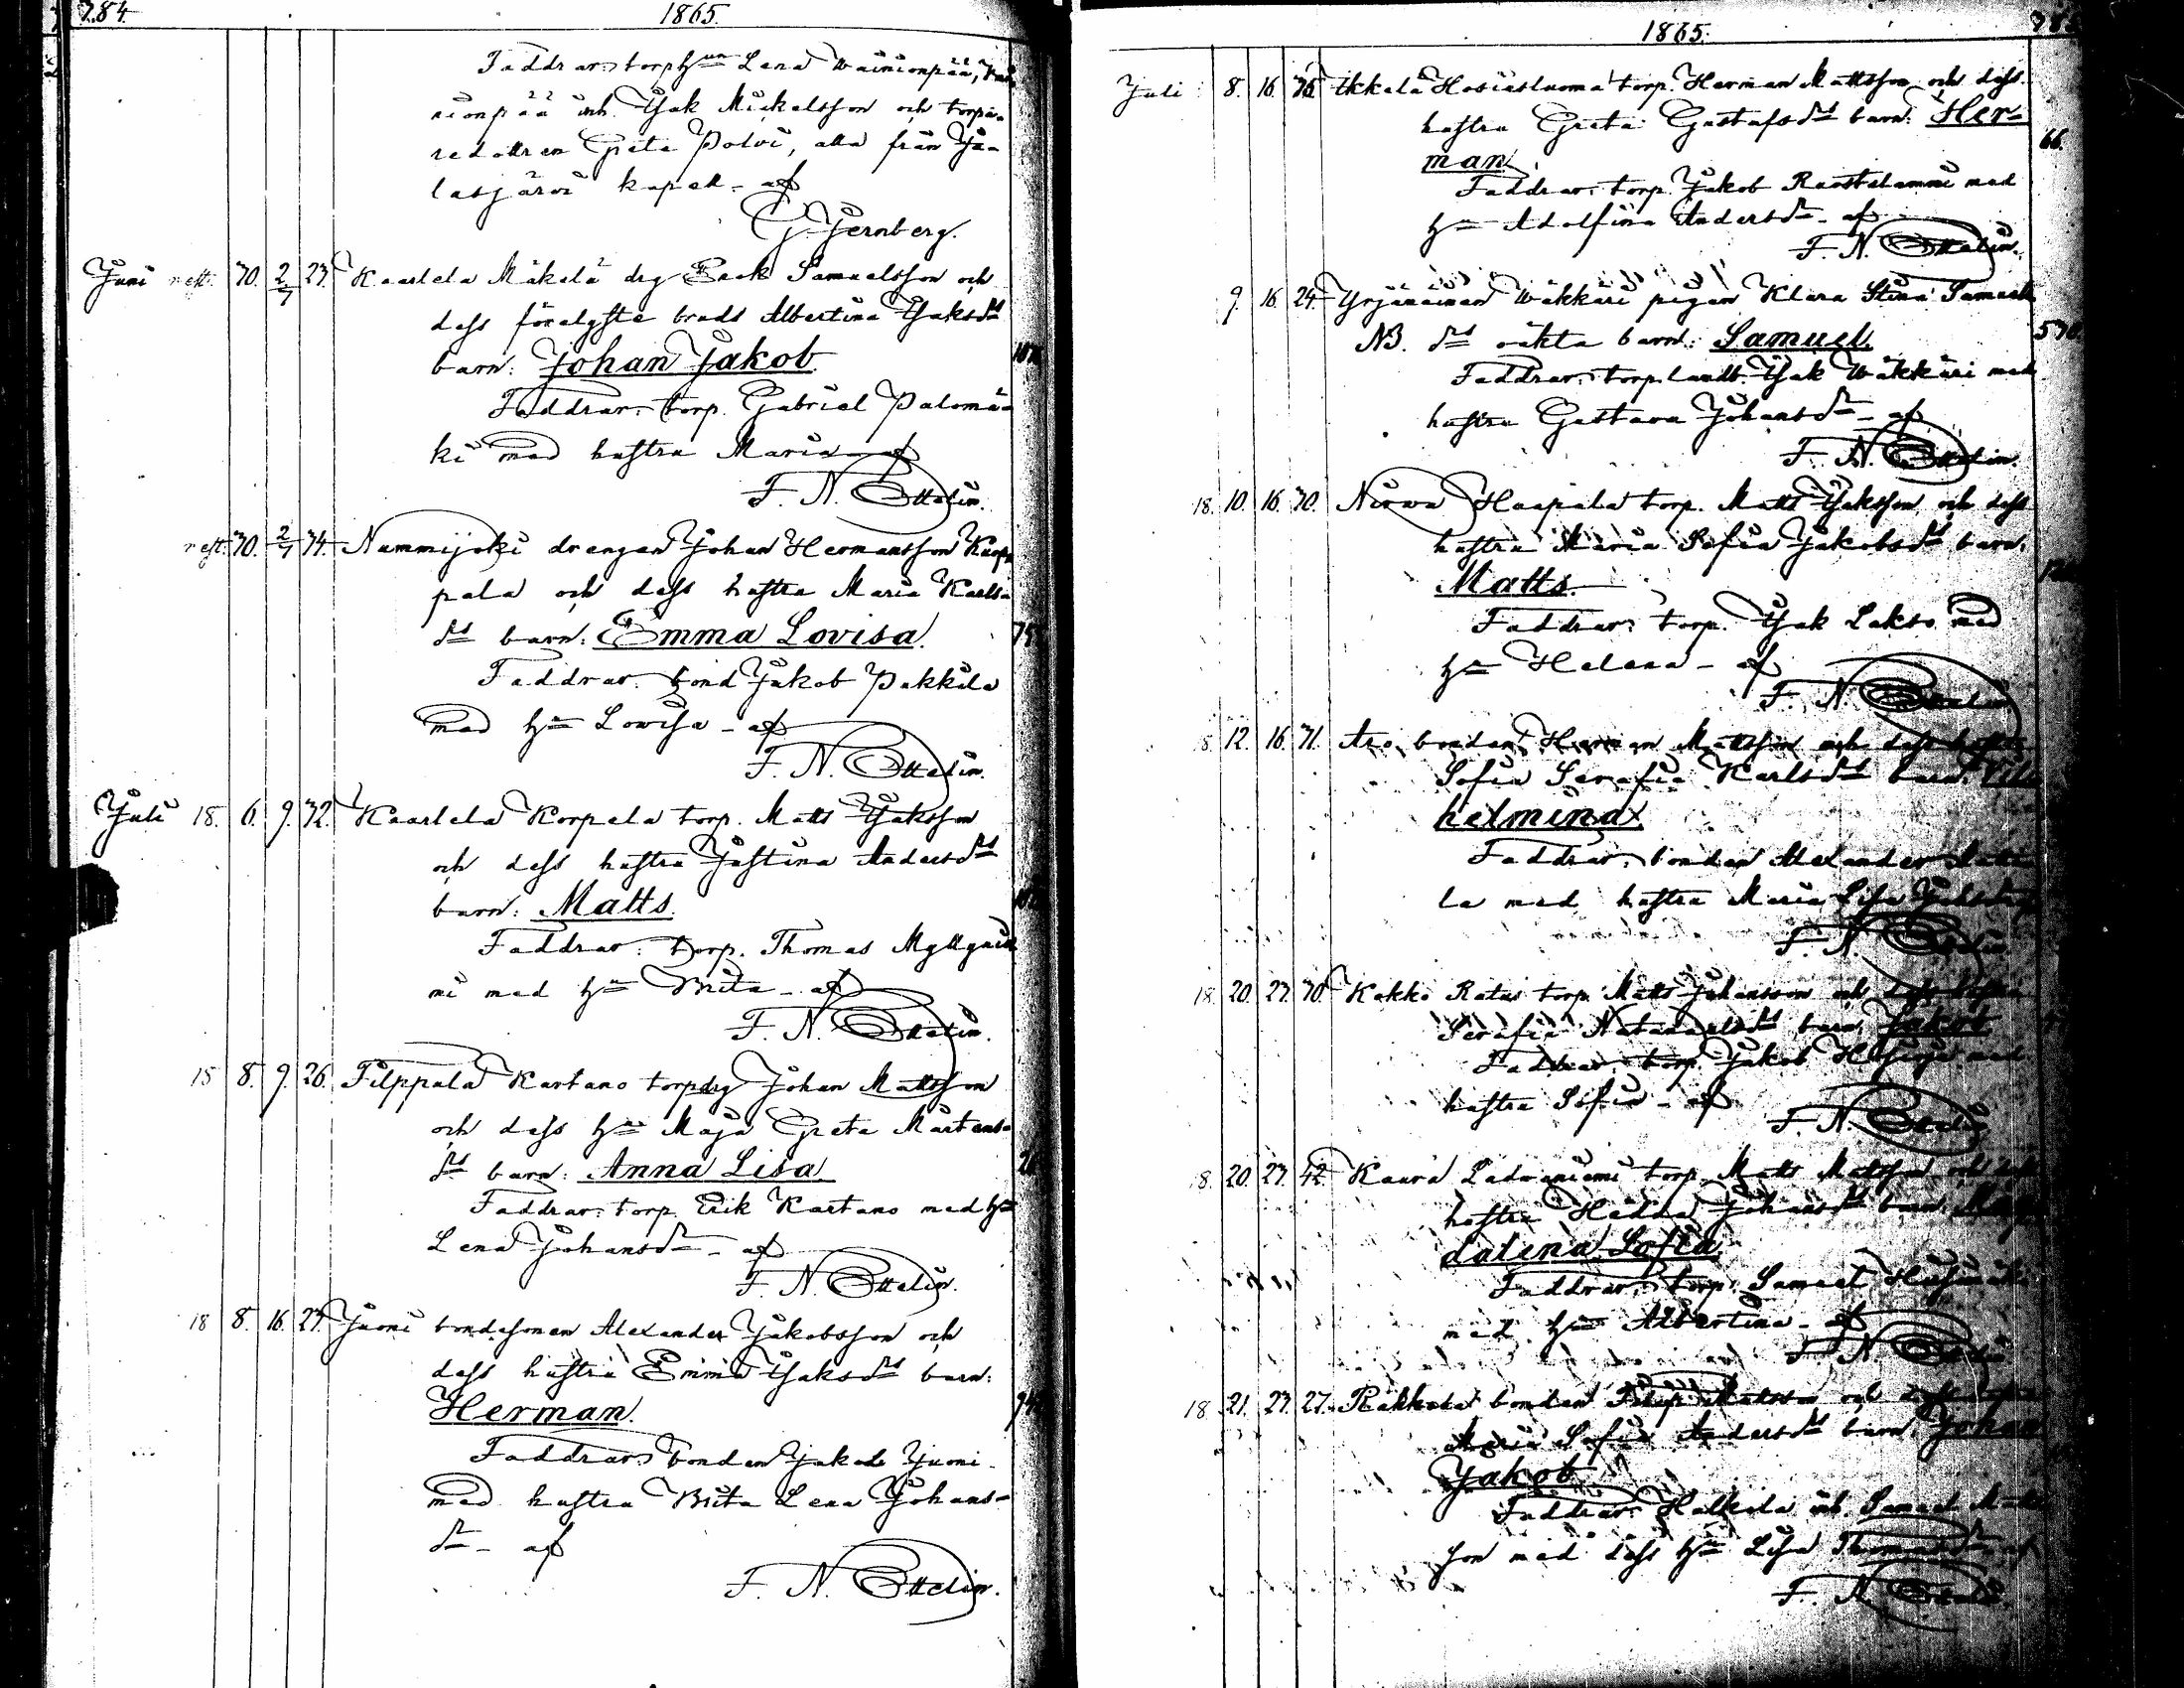 784.
1865.
Faddrar: torph:un Lena Wäinionpää, Wäi-
nionpää inh. Isak Mickelsson och torpa-
redottren Greta Potvi, alla från Ja-
lasjärvi kapell - af
G. Jernberg.
Juni 30. 2/7 23. Kaarlela Mäkelä drg Isak Samuelsson och
dess förelofste bruds Albertina Isaksd:s
barn: Johan Jakob.
Faddrar: torp. Gabriel Palomä-
ki med hustru Maria - af
F. N. Ottelin.
30. 2/7 34. Nummijoki drengen Johan Hermansson
pala och dess hustru Maria Karls-
d:s barn: Emma Lovisa.
Faddrar: bond Jakob Pukkila
med h:u Lovisa - af
F. N. Ottelin.
Juli 18. 6. 9. 32. Kaarlela Korpela torp. Matts Isaksson
och dess hustru Justina Andersd:s
barn: Matts.
Faddrar: torp. Thomas Myllynie-
mi med h:u Brita - af
F. N. Ottelin.
15 8. 9. 26. Filppala Kartano torpdrg Johan Mattsson
och dess h:us Maja Greta Mårtens-
d:s barn: Anna Lisa. 26
Faddrar: torp. Erik Kartano med h:u
Lena Johansd:r - af
F. N. Ottelin.
18 8. 16. 27. Juoni bondesonen Alexander Jakobsson och
dess hustru Emma Isaksd:s barn:
Herman.
Faddrar: bonden Jakob Juoni
med hustru Brita Lena Johans-
d:r - af
F. N. Ottelin.
1865.
Juli 8. 16. Ikkelä Hosiasluoma torp. Herman Mattsson och dess
hustru Greta Gustafsd:s barn: Her-
man. 66.
Faddrar: torp. Jakob Ruostelammi med
h:u Adolfina Andersd:r - af
F. N. Ottelin.
9. 16 24. Yrjänäinen Wäkkäri pigan Klara Stina Samuels
NB. d:s oäkta barn: Samuel.
Faddrar: torp.landb. Isak Wäkkäri med
hustru Gustava Johansd:r - af
F. N. Ottelin.
18. 10. 16. 30. Nirva Haapala torp. Matts Isaksson och dess
hustru Maria Sofia Jakobsd:s barn:
Matts.
Faddrar: torp. Isak Lakso med
h:u Helena - af
F. N. Ottelin.
12. 16. 31. Aro bonden Herman Mattsson och dess hustru
Sofia Serafia Karlsd:s barn: Vil-
helmina.
Faddrar: bonden Alexander
la med hustru Maria Lisa
F. N. Ottelin.
18. 20. 23. 30. Kokko Ratus torp. Matts Johansson och dess hustru
Serafia Natanaelsd:s barn: Jakob.
Faddrar: torp. Jakob med
hustru Sofia - af
F. N. Ottelin.
18. 20. 23. 42. Kaura Ladvaniemi torp. Matts Mattsson och dess
hustru Hedda Johansd:s barn: Mag-
dalena Sofia.
Faddrar: torp. Samuel
med h:u Albertina - af
F. N. Ottelin.
18 21. 23. 27. bonden Mattsson och dess hustru
Maria Sofia Andersd:s barn: Johan
Jakob.
Faddrar: Halkola inh. Samuel Matts-
son med dess h:u Lisa af
F. N. Ottelin.